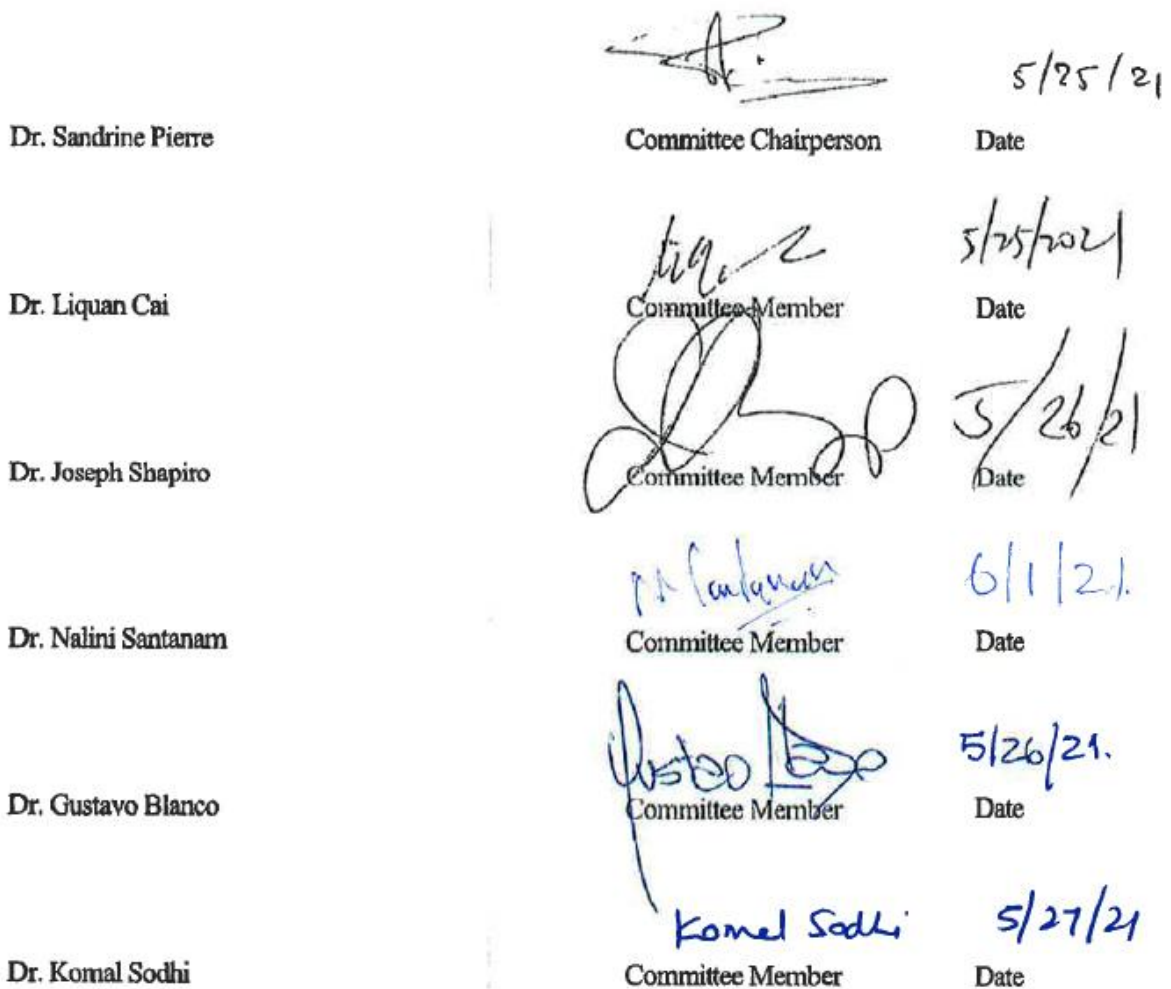 5/25/21
Dr. Sandrine Pierre Committee Chairperson Date
5/25/2021
Dr. Liquan Cai Committee Member Date
5/26/21
Dr. Joseph Shapiro Committee Member Date
6/1/21.
Dr. Nalini Santanam Committee Member Date
5/26/21.
Dr. Gustavo Blanco Committee Member Date
Komal Sodhi 5/27/21
Dr. Komal Sodhi Committee Member Date